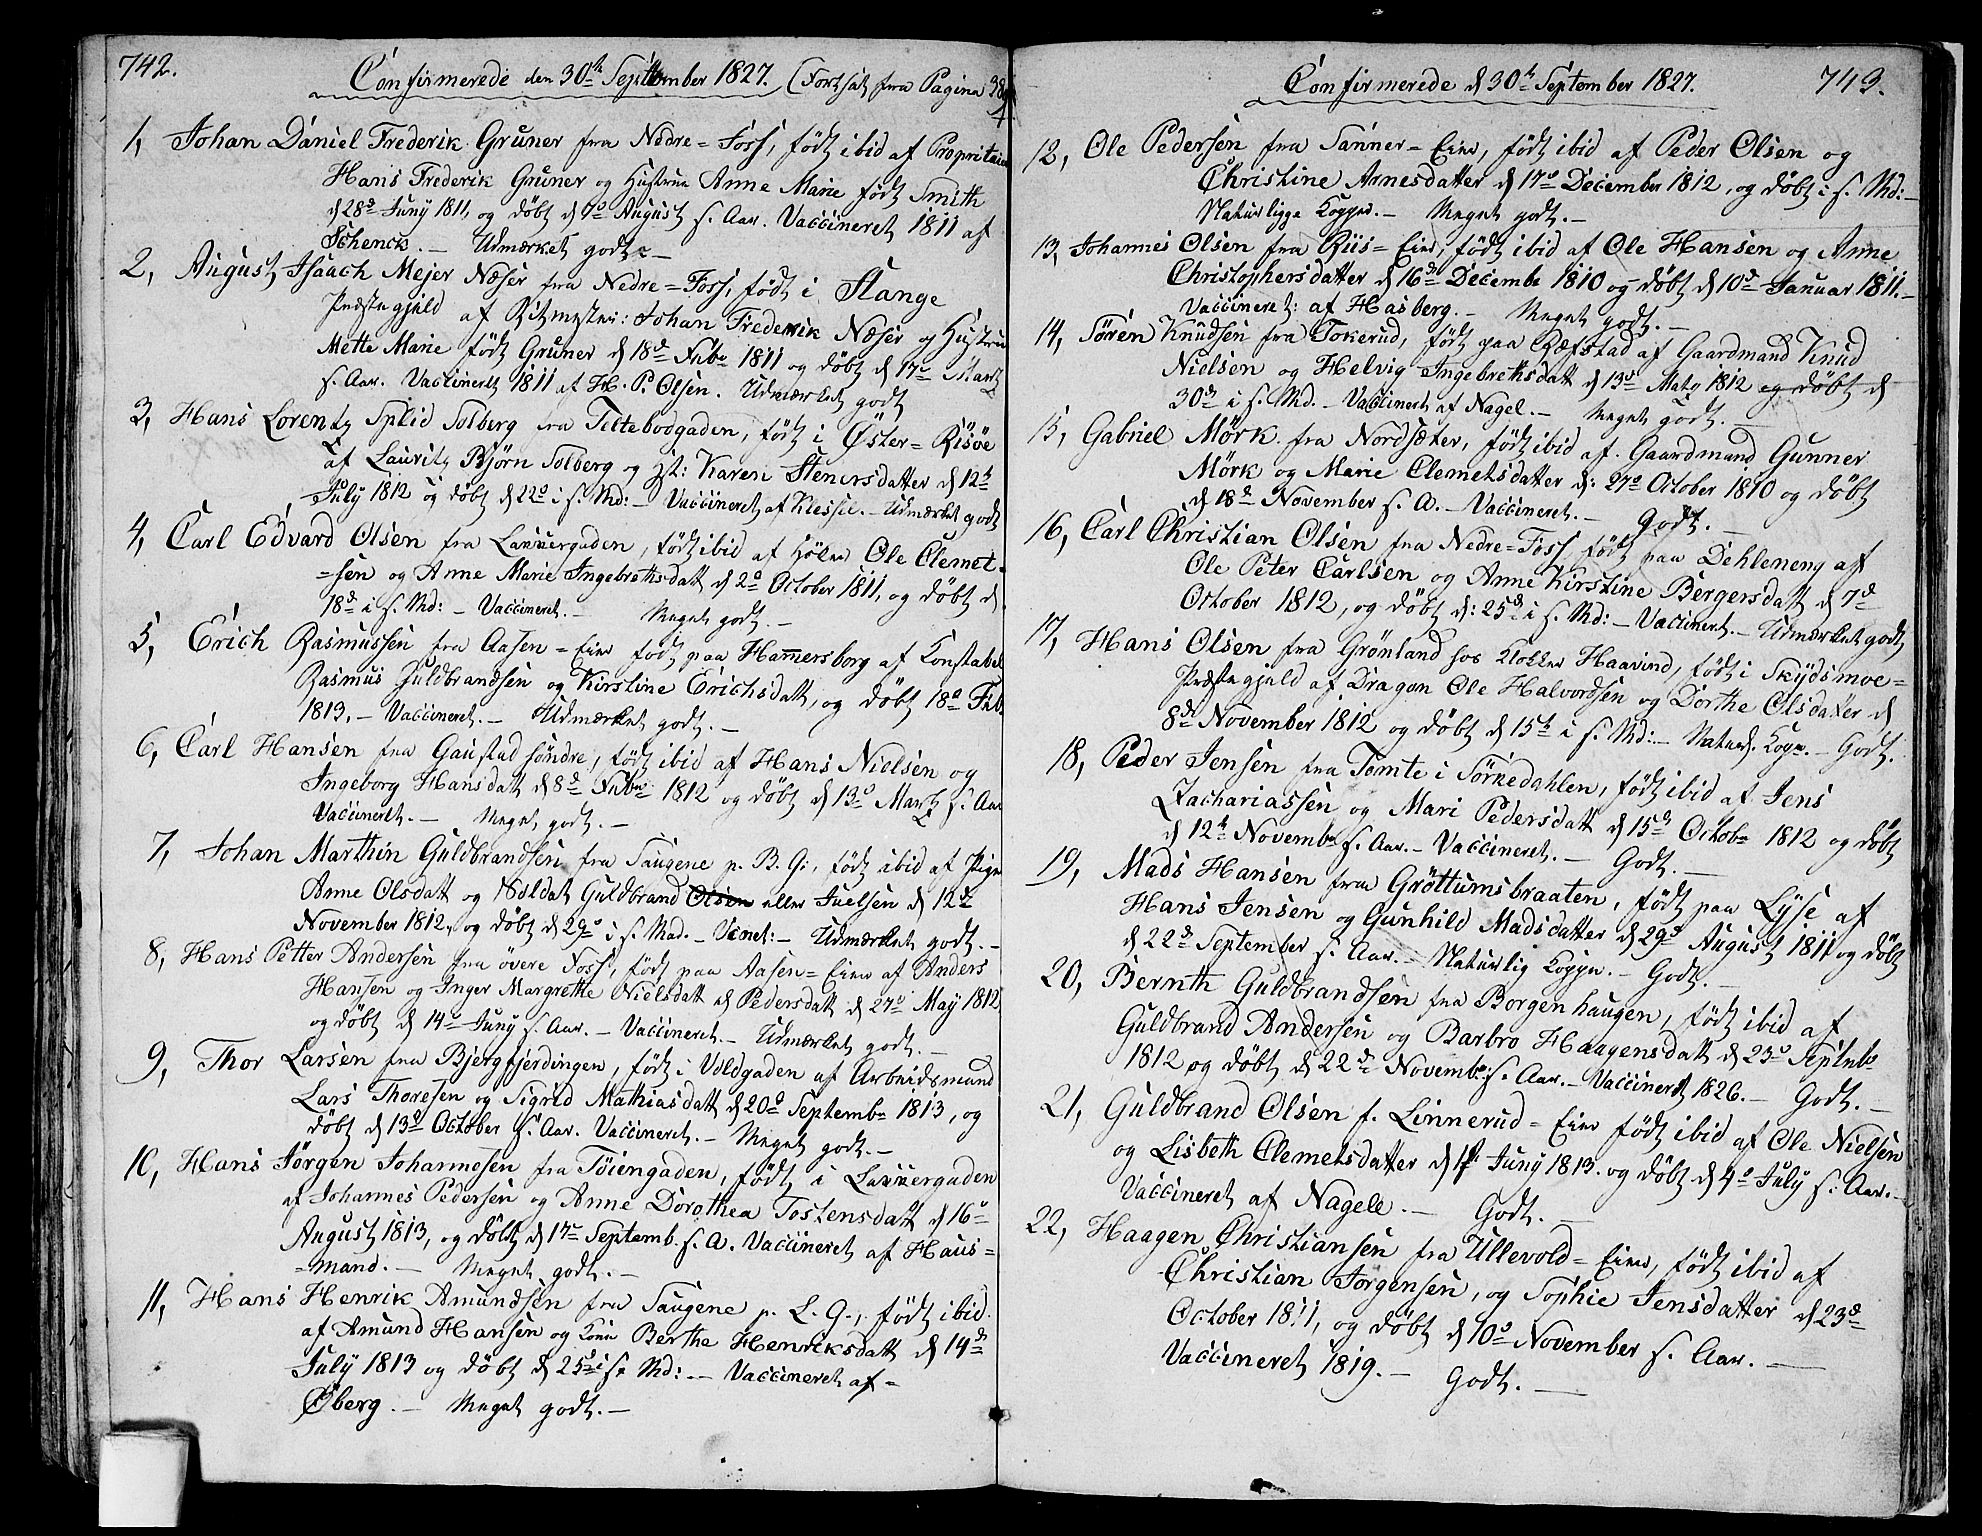 742.
Confirmerede den 30te September 1827. (Fortsat fra Pagina 384
1, Johan Daniel Frederik Gruner fra Nedre=Foss, født ibid af Propritair
Hans Frederik Gruner og Hustrue Anne Marie født Smith
d 28de Juny 1811, og døbt d 7de August s. Aar. Vaccineret 1811 af
Schenck. — Udmærket godt. —
2, August Isaach Mejer Næser fra Nedre=Foss, født i Stange
Præstegjeld af Ritmester: Johan Frederik Næser og Hustrue
Mette Marie født Gruner d 18de Febr 1811 og døbt d 17de Martz
s. Aar. Vaccineret 1811 af H. P. Olsen. Udmærket godt
3, Hans Lorentz Splid Solberg fra Teltebodgaden, født i Øster=Risøe
af Lauritz Bjørn Solberg og Karen Stenersdatter d 12te
July 1812 og døbt d 22de i s. Md: — Vaccineret af Klessel. — Udmærket godt
4, Carl Edvard Olsen fra Lakkergaden, født ibid af Ole Clemet-
=sen og Anne Marie Ingebrethsdatt d 2de October 1811, og døbt d.
18de i s. Md: — Vaccineret. — Meget godt. —
5, Erich Rasmussen fra Aasen=Eier født paa Hamersborg af Konstabel
Rasmus Guldbrandsen og Kirstine Erichsdatt, og døbt 18de Feb.
1813. — Vaccineret. — Udmærket godt. —
6, Carl Hansen fra Gaustad søndre, født ibid af Hans Nielsen og
Ingeborg Hansdatt d 8de Febr 1812 og døbt d 13de Martz s. Aar
Vaccineret. — Meget godt. —
7, Johan Marthin Guldbrandsen fra Saugene p. B. G:, født ibid af Pige
Anne Olsdatt og Soldat Guldbrand Olsen eller Juelsen d 12te
November 1812, og døbt d 29de i s. Mad. — Vacnet: — Udmærket godt. —
8, Hans Petter Andersen fra övere Foss, født paa Aasen=Eier af Anders
Hansen og Inger Margrethe Nielsdatt Pedersdatt d 27de May 1812
og døbt d 14de Juny s. Aar. — Vaccineret. — Udmærket godt. —
9, Thor Larsen fra Bjergfjerdingen, født i Voldgaden af Arbeidsmand
Lars Thoresen og Sigrid Mathiasdatt d 20de Septembr 1813, og
døbt d 13de October s. Aar. Vaccineret. — Meget godt. —
10, Hans Jørgen Johannesen fra Töiengaden, født i Lakkergaden
af Johannes Pedersen og Anne Dorothea Tostensdatt d 16de
August 1813, og døbt d 17de Septemb. s. A. Vaccineret af Haus=
=mand. — Meget godt. —
11, Hans Henrik Amundsen fra Saugene p. L. G., født ibid.
af Amund Hansen og Kone Berthe Henriksdatt d 14de
July 1813 og døbt d 25de i s. Md: — Vaccineret af =
Øberg. — Meget godt. —
Confirmerede d 30te September 1827.
743.
12, Ole Pedersen fra Sanner=Eier, født ibid af Peder Olsen og
Christine Arnesdatter d 17de December 1812, og døbt i s. Md: —
Naturlige Kopper. — Meget godt. —
13, Johannes Olsen fra Riis=Eier, født ibid af Ole Hansen og Anne
Christophersdatter d 16de Decembr 1810 og døbt d 10de Januar 1811. —
Vaccineret: af Hasberg. — Meget godt. —
14, Sören Knudsen fra Tokerud, født paa Refstad af Gaardmand Knud
Nielsen og Helvig Ingebrethsdatt d 13de May 1812 og døbt d
30de i s. Md. — Vaccineret af Nagel. — Meget godt. —
15, Gabriel Mörk fra Nordsæter, født ibid af Gaardmand Gunner
Mörk og Marie Clemetsdatter d: 27de October 1810 og døbt
d 18de November s. A. — Vaccineret. — Godt. —
16, Carl Christian Olsen fra Nedre=Foss, født paa Dehleneng af
Ole Peter Carlsen og Anne Kirstine Bergersdatt d 7de
October 1812, og døbt d: 25de i s. Md: — Vaccineret. — Udmærket godt
17, Hans Olsen fra Grönland hos Klokker Haavind, født i Skydsmoe=
Præstegjeld af Dragon Ole Halvordsen og Dorthe Olsdatter d
8de November 1812 og døbt d 15te i s. Md: — Naturl. Kopr. — Godt.
18, Peder Jensen fra Tomte i Sörkedahlen, født ibid af Jens
Zachariassen og Mari Pedersdatt d 15de Octobr 1812 og døbt
d 12te Novembr s. Aar. — Vaccineret. — Godt. —
19, Mads Hansen fraa Gröttumsbraaten, født paa Lyse af
Hans Jensen og Gunhild Madsdatter d 29de August 1811 og døbt
d 22de September s. Aar. — Naturlig Kopper. — Godt. —
20, Bernth Guldbrandsen fra Borgenhaugen, født ibid af
Guldbrand Andersen og Barbro Haagensdatt d 23de Septebr
1812 og døbt d 22de Novembr s. Aar. — Vaccineret 1826. — Godt. —
21, Guldbrand Olsen f. Linnerud=Eier født ibid af Ole Nielsen
og Lisbeth Clemetsdatter d 1st Juny 1813. og døbt d 4de July s. Aar. —
Vaccineret af Nagele. — Godt. —
22, Haagen Christiansen fra Ullevold=Eier, født ibid af
Christian Jörgensen, og Sophie Jensdatter d 23de
October 1811, og døbt d 10de November s. Aar. —
Vaccineret 1819. — Godt. —